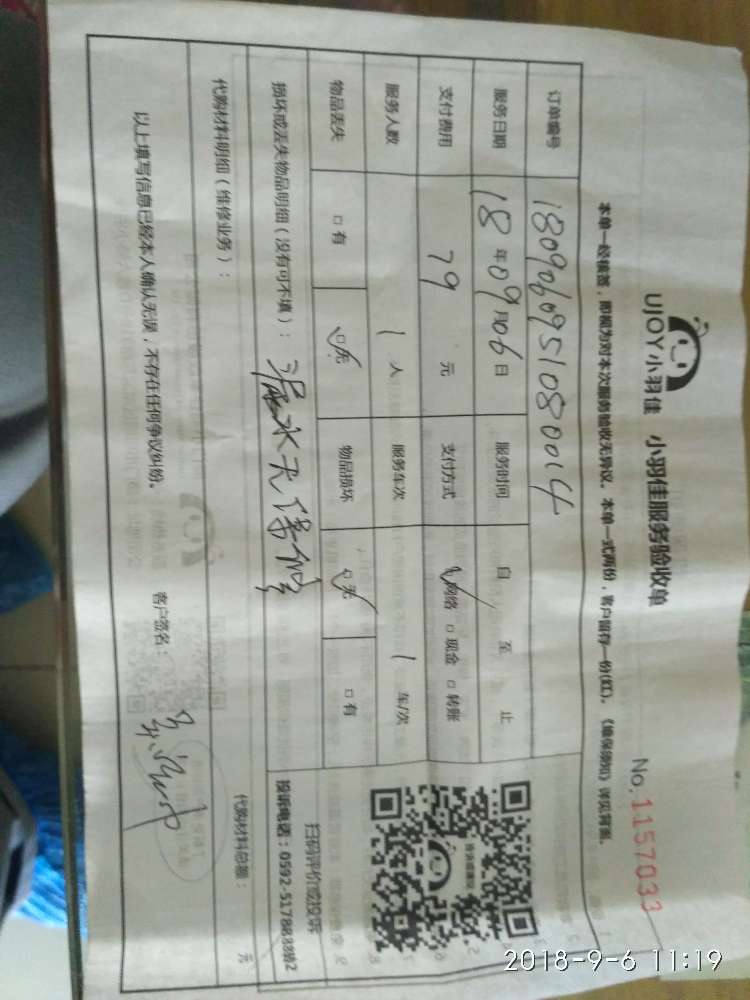 UJOY小羽佳 小羽佳服务验收单
No.1157033
本单一经核签，即视为对本次服务验收无异议。本单一式两份，客户留存一份(红)。《维保须知》详见背面。
订单编号 1809060951080014
服务日期 18年09月06日 服务时间 自 至 止
支付费用 79 元 支付方式 网络 □现金 □转账
服务人数 1 人 服务车次 1 车/次
物品丢失 □有 □无 物品损坏 □无 □有
损坏或丢失物品明细（没有可不填）： 漏水无保修
扫码评价或投诉
投诉电话：0592-5178888转2
代购材料明细（维修业务）： 代购材料总额： 元
以上填写信息已经本人确认无误，不存在任何争议纠纷。 客户签名：
2018-9-6 11:19